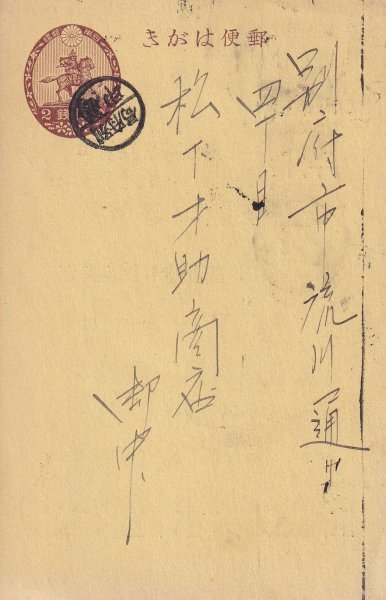 郵便はがき
別府市流川通り
四丁目
松下才助商店
御中
2
銭